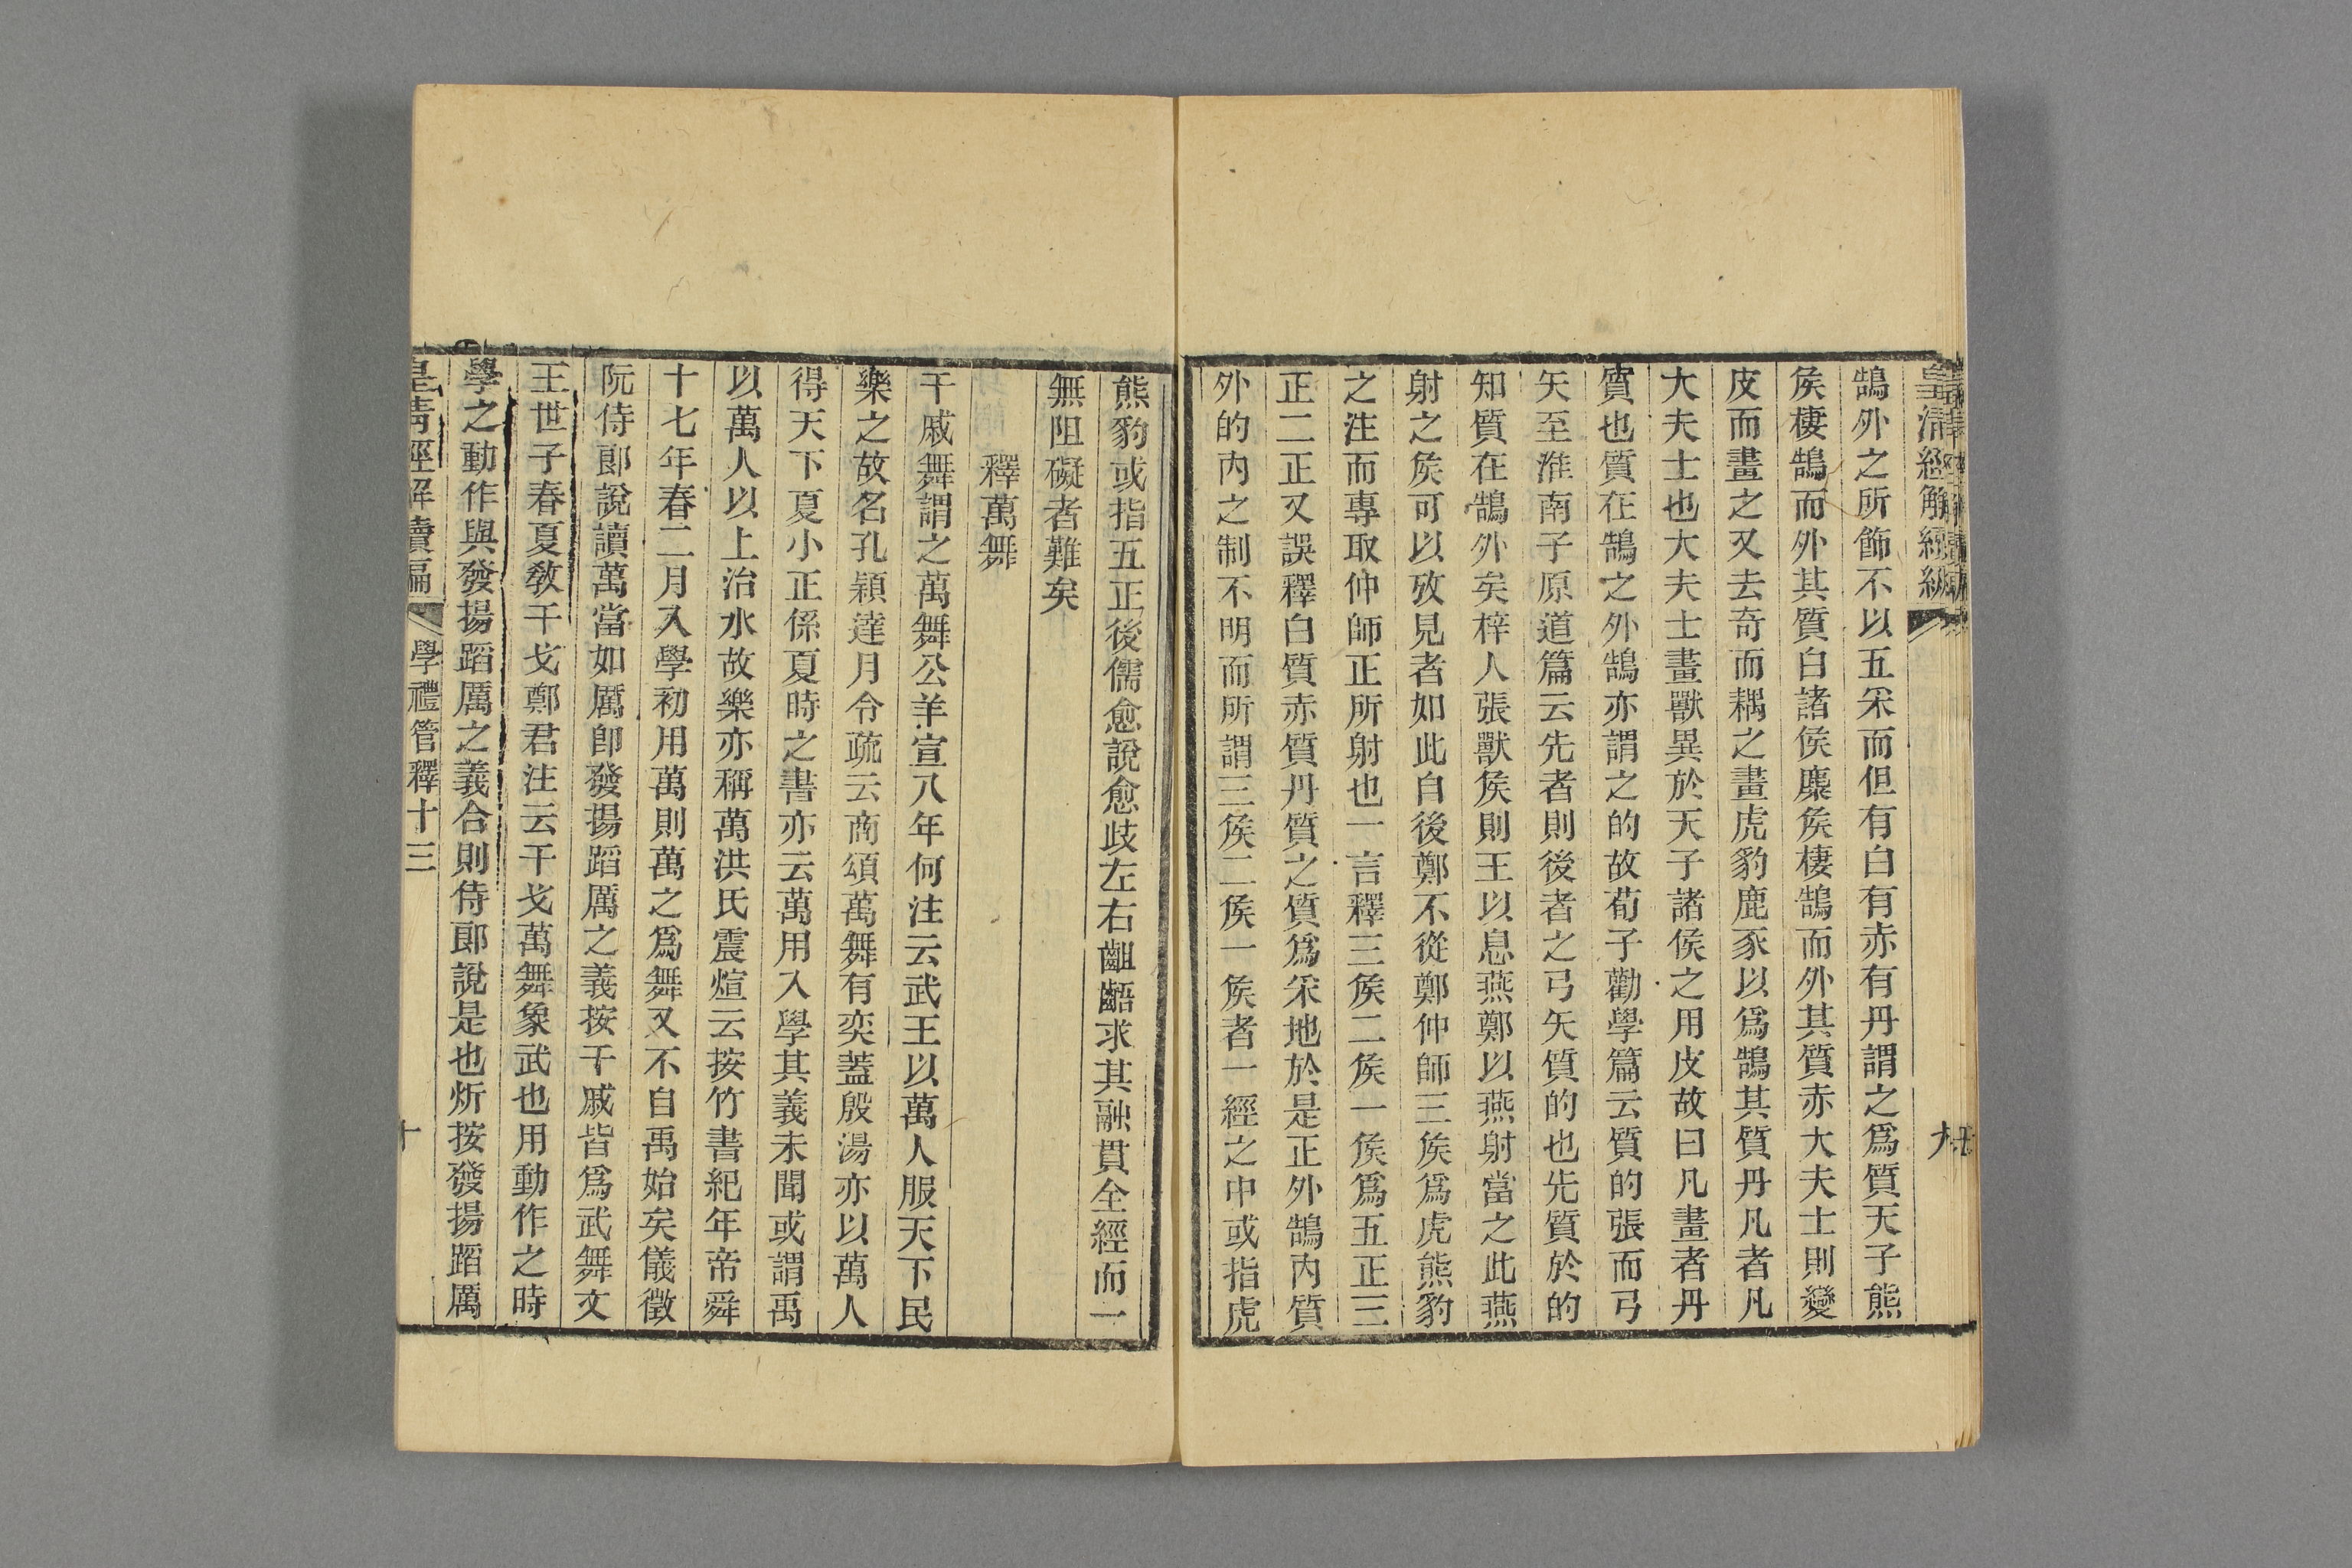 皇清經解續編
九
鵠外之所飾不以五采而但有白有赤有丹謂之爲質天子熊
矦棲鵠而外其質白諸侯麋矦棲鵠而外其質赤大夫士則變
皮而畫之又去奇而耦之畫虎豹鹿豕以爲鵠其質丹凡者凡
大夫士也大夫士畫獸異於天子諸侯之用皮故曰凡畫者丹
質也質在鵠之外鵠亦謂之的故荀子勸學篇云質的張而弓
矢至淮南子原道篇云先者則後者之弓矢質的也先質於的
知質在鵠外矣梓人張獸矦則王以息燕鄭以燕射當之此燕
射之矦可以攷見者如此自後鄭不從鄭仲師三矦爲虎熊豹
之注而專取仲師正所射也一言釋三矦二矦一矦爲五正三
正二正又誤釋白質赤質丹質之質爲采地於是正外鵠內質
外的內之制不明而所謂三矦二矦一矦者一經之中或指虎
熊豹或指五正後儒愈說愈歧左右齟齬求其融貫全經而一
無阻礙者難矣
釋萬舞
干戚舞謂之萬舞公羊宣八年何注云武王以萬人服天下民
樂之故名孔穎達月令疏云商頌萬舞有奕蓋殷湯亦以萬人
得天下夏小正係夏時之書亦云萬用入學其義未聞或謂禹
以萬人以上治水故樂亦稱萬洪氏震煊云按竹書紀年帝舜
十七年春二月入學初用萬則萬之爲舞又不自禹始矣儀徵
阮侍郎說讀萬當如厲卽發揚蹈厲之義按干戚皆爲武舞文
王世子春夏敎干戈鄭君注云干戈萬舞象武也用動作之時
學之動作與發揚蹈厲之義合則侍郎說是也炘按發揚蹈厲
皇清經解續編
學禮管釋十三
十